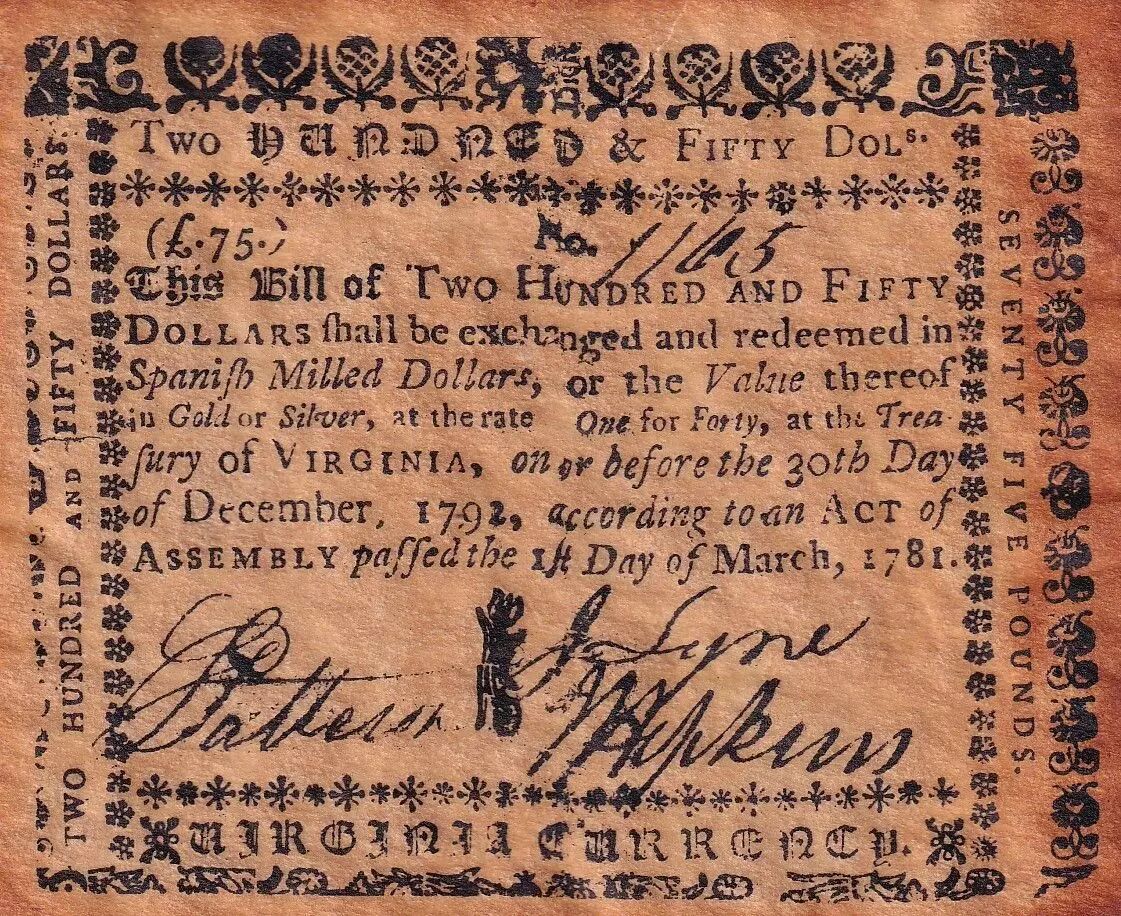 Two HUNDRED & FIFTY DOLs.
(£.75.)
No. 1165
This Bill of TWO HUNDRED AND FIFTY
DOLLARS ſhall be exchanged and redeemed in
Spaniſh Milled Dollars, or the Value thereof
in Gold or Silver, at the rate One for Forty, at the Trea-
ſury of VIRGINIA, on or before the 30th Day
of December, 1792, according to an ACT of
ASSEMBLY paſſed the 1ſt Day of March, 1781.
J Lyne
Hopkins
VIRGINIA CURRENCY.
TWO HUNDRED AND FIFTY DOLLARS
SEVENTY FIVE POUNDS.